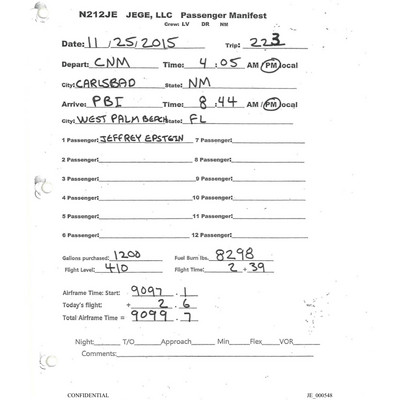 N212JE JEGE, LLC Passenger Manifest
Crew: LV DR NM
Date: 11/25/2015 Trip: 223
Depart: CNM Time: 4:05 AM PM Local
City: CARLSBAD State: NM
Arrive: PBI Time: 8:44 AM/PM Local
City: WEST PALM BEACH State: FL
1 Passenger: JEFFREY EPSTEIN 7 Passenger:
2 Passenger: 8 Passenger:
3 Passenger: 9 Passenger:
4 Passenger: 10 Passenger:
5 Passenger: 11 Passenger:
6 Passenger: 12 Passenger:
Gallons purchased: 1200 Fuel Burn lbs. 8298
Flight Level: 410 Flight Time: 2+39
Airframe Time: Start: 9097.1
Today's flight: + 2.6
Total Airframe Time = 9099.7
Night: T/O Approach Min Flex VOR
Comments:
CONFIDENTIAL JE_000548